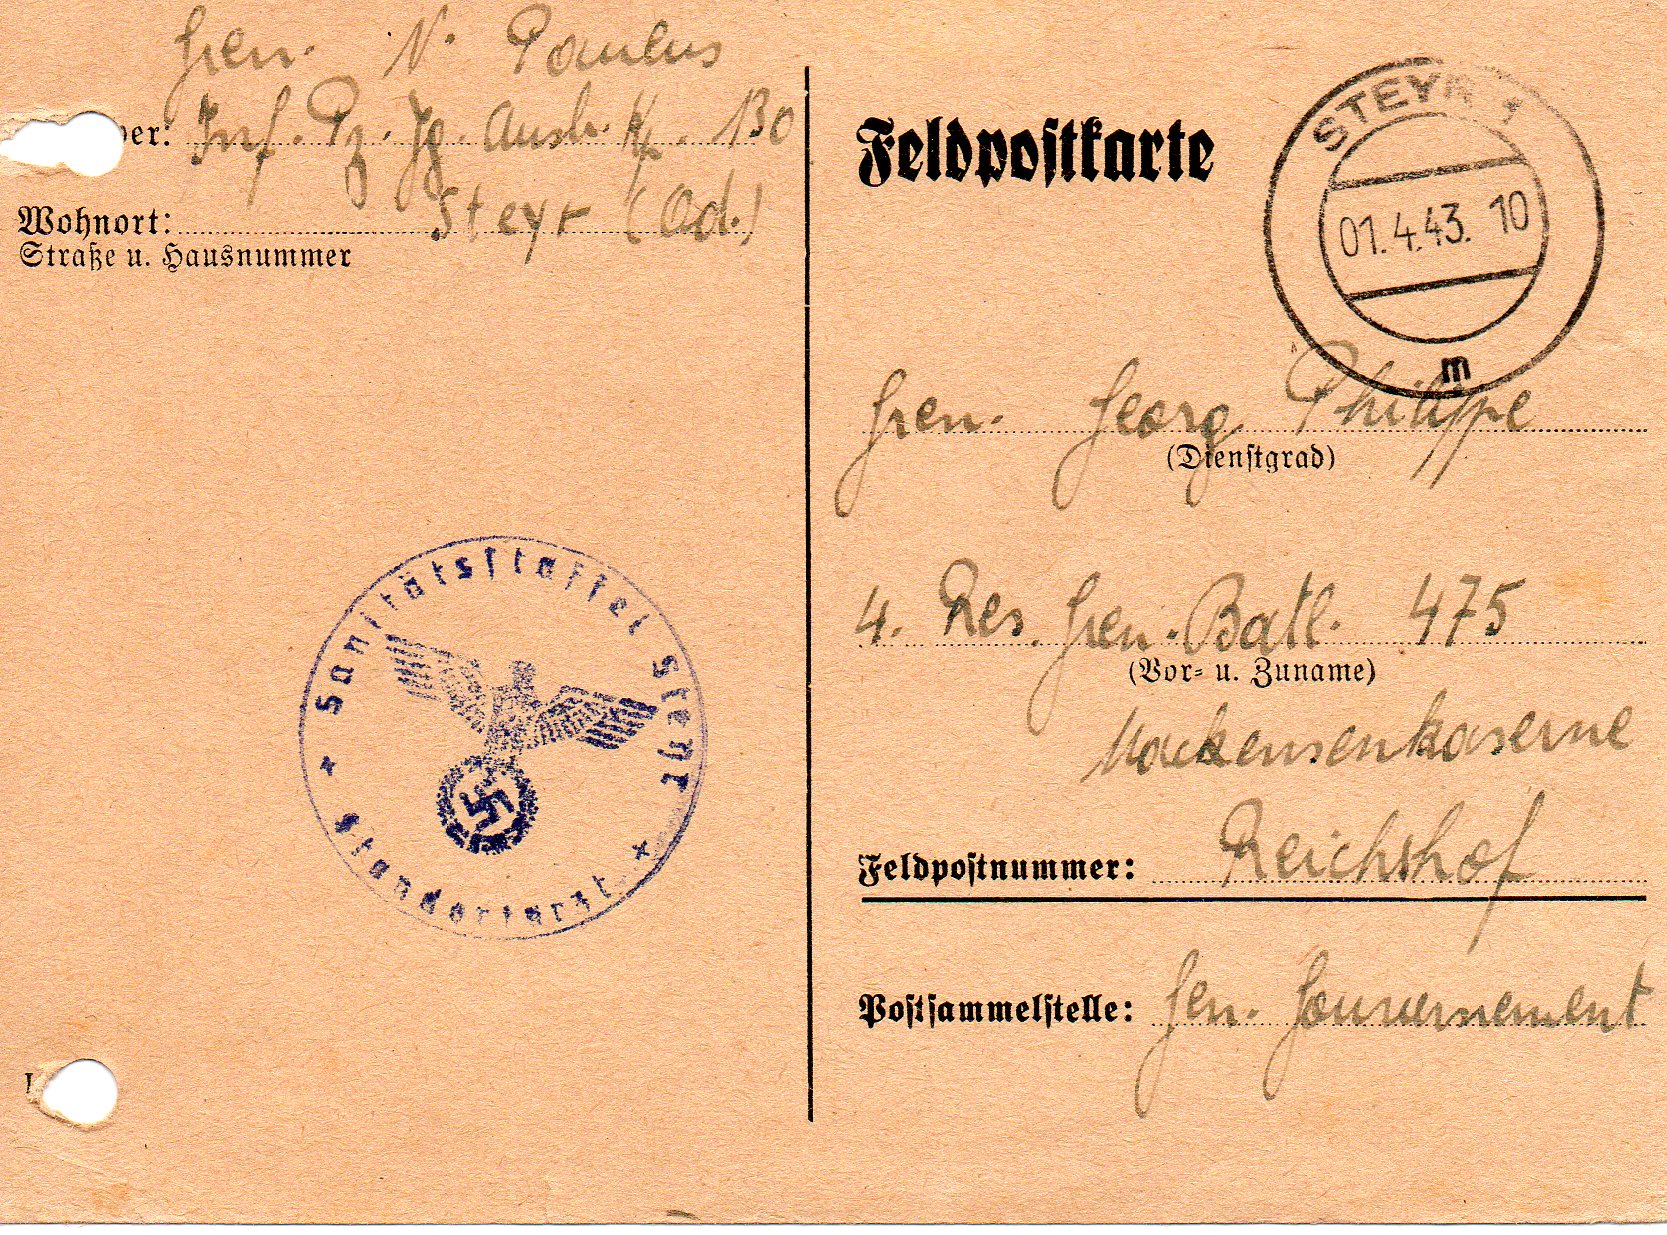 Gren. N. Paulus
ber: Inf. Pz. Jg. Ausb. Kp. 130
Wohnort: Steyr (Od.)
Straße u. Hausnummer
Sanitätsstaffel Steyr
Standortarzt
Feldpostkarte
STEYR 1
01.4.43. 10
m
Gren. Georg Philippe
(Dienstgrad)
4. Res. Gren. Batl. 475
(Vor- u. Zuname)
Mackensenkaserne
Feldpostnummer: Reichshof
Postsammelstelle: Gen. Gouvernement